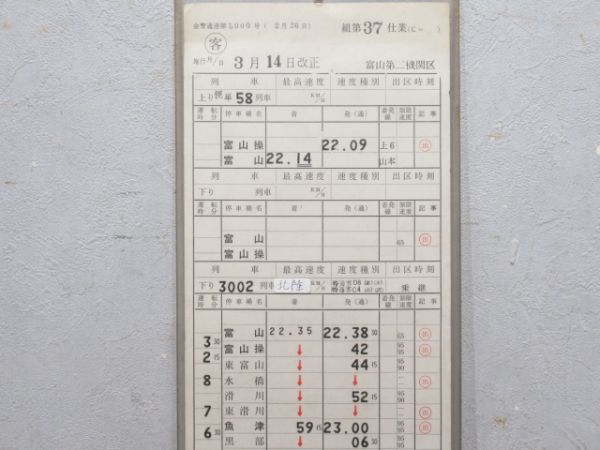 金響通達第5000号(2月26日)
組第37仕業(C- )
客
施行月/日 3月14日改正
富山第二機関区
列車 最高速度 速度種別 出区時刻
上り 単58列車 KM/H
運転時分 停車場名 着 発(通) 着発線 制限速度 記事
富山操 22.09 上6 出
富山 22.14 山本
列車 最高速度 速度種別 出区時刻
下り 列車 KM/H
運転時分 停車場名 着 発(通) 着発線 制限速度 記事
富山 65 出
富山操
列車 最高速度 速度種別 出区時刻
下り 3002列車 北陸 KM/H 乗継
運転時分 停車場名 着 発(通) 着発線 制限速度 記事
富山 22.35 22.38 30 65 出
3 30 富山操 ↓ 42 95 95 出
2 15 東富山 ↓ 44 15 95 90
8 水橋 ↓ ↓ 出
滑川 ↓ 52 15 95 90
7 東滑川 ↓ ↓ 出
6 30 魚津 59 15 23.00 95 95 出
黒部 ↓ 06 30 95 95